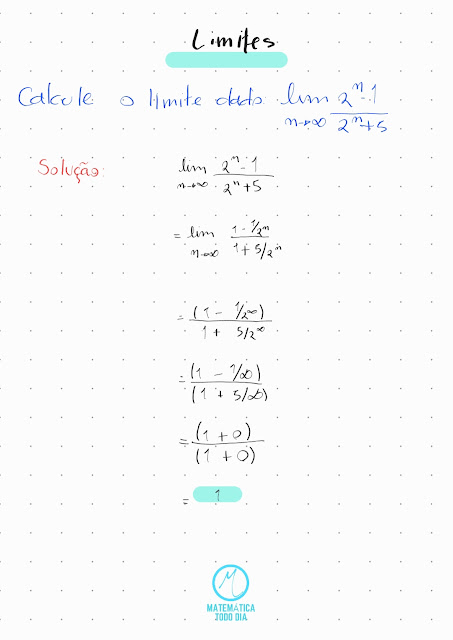 Limites
Calcule o limite dado lim 2^n-1 / 2^n+5
n→∞
Solução:
lim 2^n-1 / 2^n+5
n→∞
= lim 1-1/2^n / 1+5/2^n
n→∞
= (1 - 1/2^∞) / 1 + 5/2^∞
= (1 - 1/∞) / (1 + 5/∞)
= (1+0) / (1+0)
= 1
MATEMÁTICA
TODO DIA